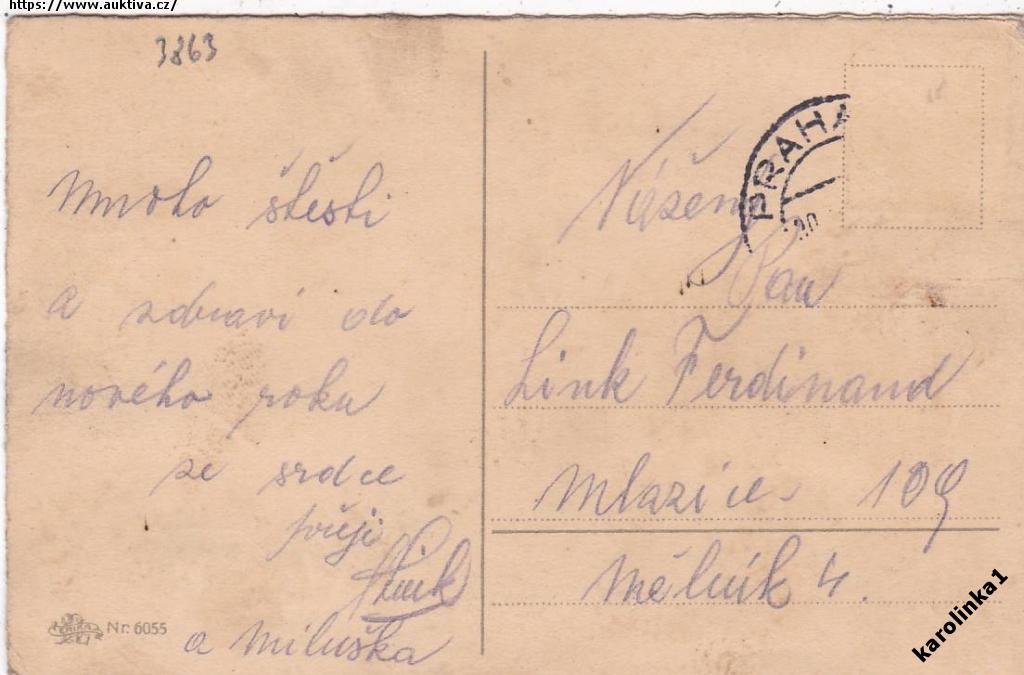 https://www.auktiva.cz/
3863
Mnoho štěstí
a zdraví do
nového roku
ze srdce
přeji
Link
a Miluška
Nr. 6055
PRAHA
20
Vážen
Pan
Link Ferdinand
Mlazice 109
Mělník 4.
karolinka1